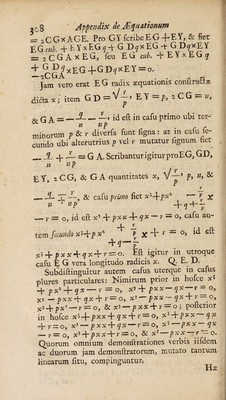 328 Appendix de Æquationum
= 2CG×AGE. Pro GY scribe EG+EY, & fiet
EG cub. + EY×EGq + GDq×EG + GDq×EY
= 2CGA×EG, seu EG cub. + EY×EGq
+ GDq×EG + GDq×EY = 0.
− 2CGA
Jam vero erat EG radix æquationis constructæ
dicta x; item GD = √ r/p, EY = p, 2CG = u,
& GA = − q/u − r/up, id est in casu primo ubi ter-
minorum p & r diversa sunt signa: at in casu se-
cundo ubi alterutrius p vel r mutatur signum fiet
− q/u + r/up = GA. Scribantur igitur pro EG, GD,
EY, 2CG, & GA quantitates x, √ r/p, p, u, &
− q/u ∓ r/up, & casu primo fiet x³+px² − r/p x
+q+ r/p
− r = 0, id est x³+pxx+qx−r=0, casu au-
tem secundo x³+px² + r/p x + r = 0, id est
+q− r/p
x³+pxx+qx+r=0. Est igitur in utroque
casu EG vera longitudo radicis x. Q. E. D.
Subdistinguitur autem casus uterque in casus
plures particulares: Nimirum prior in hosce x³
+px²+qx−r=0, x³+pxx−qx−r=0,
x³−pxx+qx+r=0, x³−pxx−qx+r=0,
x³+px²−r=0, & x³−pxx+r=0; posterior
in hosce x³+pxx+qx+r=0, x³+pxx−qx
+r=0, x³−pxx+qx−r=0, x³−pxx−qx
−r=0, x³+pxx+r=0, & x³−pxx−r=0.
Quorum omnium demonstrationes verbis iisdem
ac duorum jam demonstratorum, mutato tantum
linearum situ, compinguntur.
Hx